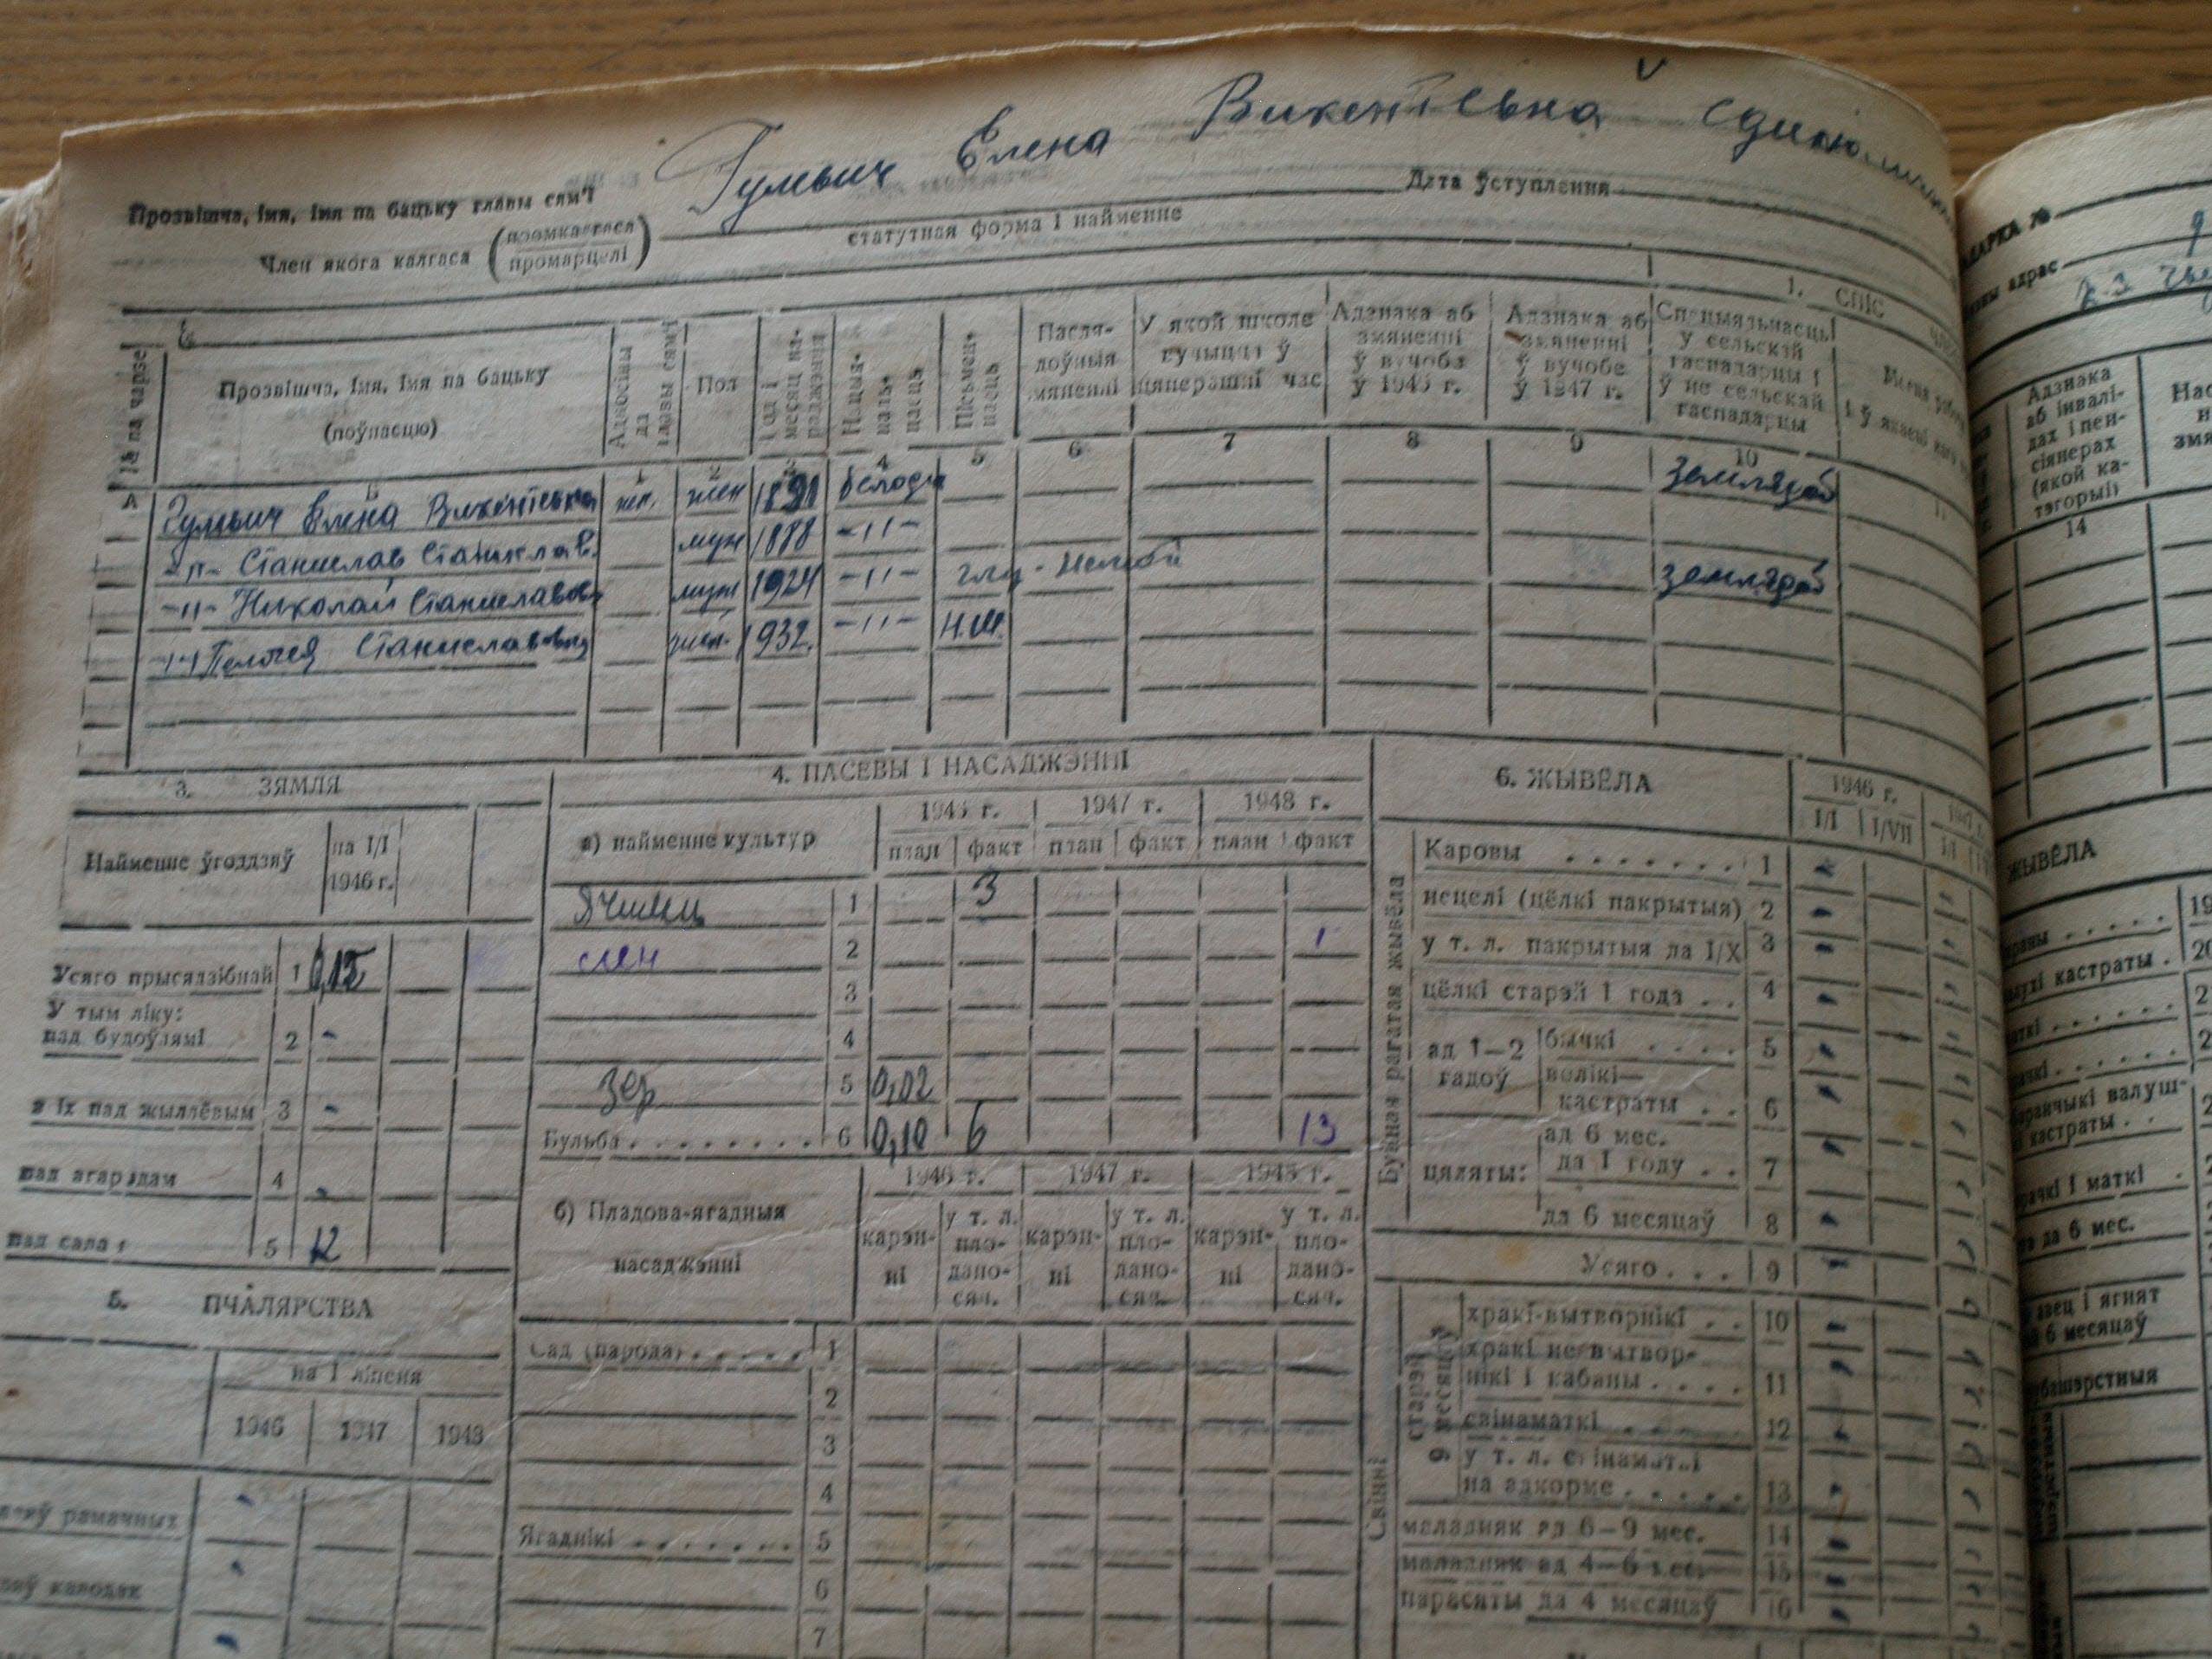 Гулевич Елена Викентьевна
Прозвішча, імя, імя па бацьку главы сям'і
Дата ўступлення
Член якога калгаса (промкалгаса промарцелі)
статутная форма і найменне
1. СПІС
№ па чарзе
Прозвішча, імя, імя па бацьку (поўнасцю)
Адносіны да главы сям'і
Пол
Год і месяц нараджэння
Нацыянальнасць
Пісьменнасць
Паслядоўныя змяненні
У якой школе вучыцца ў цяперашні час
Адзнака аб змяненні ў вучобе ў 1946 г.
Адзнака аб змяненні ў вучобе ў 1947 г.
Спецыяльнасць у сельскай гаспадарцы і ў не сельскай гаспадарцы
А Б 1 2 3 4 5 6 7 8 9 10
Гулевич Елена Викентьевна жен 1891 белор землядел
-"- Станислав Станислав. муж 1888 -"-
-"- Николай Станиславов муж 1924 -"- глу-немой землядел
-"- Станиславовна жен. 1932. -"- Н.Ш.
3. ЗЯМЛЯ
Найменне ўгоддзяў
на I/I 1946 г.
Усяго прысядзібнай 1 0,12
У тым ліку:
пад будоўлямі 2 -
з іх пад жыллёвым 3 -
пад агародам 4 -
пад сада 5 12
4. ПАСЕВЫ І НАСАДЖЭННІ
а) найменне культур
1946 г. 1947 г. 1948 г.
план факт план факт план факт
Ячмень 1 3
лен 2 1
3
4
зер 5 0,02
Бульба 6 0,10 6 13
б) Пладова-ягадныя насаджэнні
1946 г. 1947 г. 1948 г.
карэнні у т. л. пладаносяч. карэнні у т. л. пладаносяч. карэнні у т. л. пладаносяч.
Сад (парода) 1
2
3
4
Ягаднікі 5
6
7
5. ПЧАЛЯРСТВА
на 1 ліпеня
1946 1947 1948
рамачных -
калодак -
6. ЖЫВЁЛА
1946 г.
I/I I/VII
Буйная рагатая жывёла
Каровы 1 -
нецелі (цёлкі пакрытыя) 2 -
у т. л. пакрытыя да I/X 3 -
цёлкі старэй 1 года 4 -
ад 1—2 гадоў
бычкі 5 -
волікі—кастраты 6 -
цяляты:
ад 6 мес. да 1 году 7 -
да 6 месяцаў 8 -
Усяго 9 -
Свінні
старэй 9 месяцаў
хракі-вытворнікі 10 -
хракі невытворнікі і кабаны 11 -
свінаматкі 12 -
у т. л. свінаматкі на адкорме 13 -
маладняк ад 6—9 мес. 14 -
маладняк ад 4—6 мес. 15 -
парасяты да 4 месяцаў 16 -
адрас
Адзнака аб інвалідах і пенсіянерах (якой катэгорыі)
14
ЖЫВЁЛА
кастраты
да 6 мес.